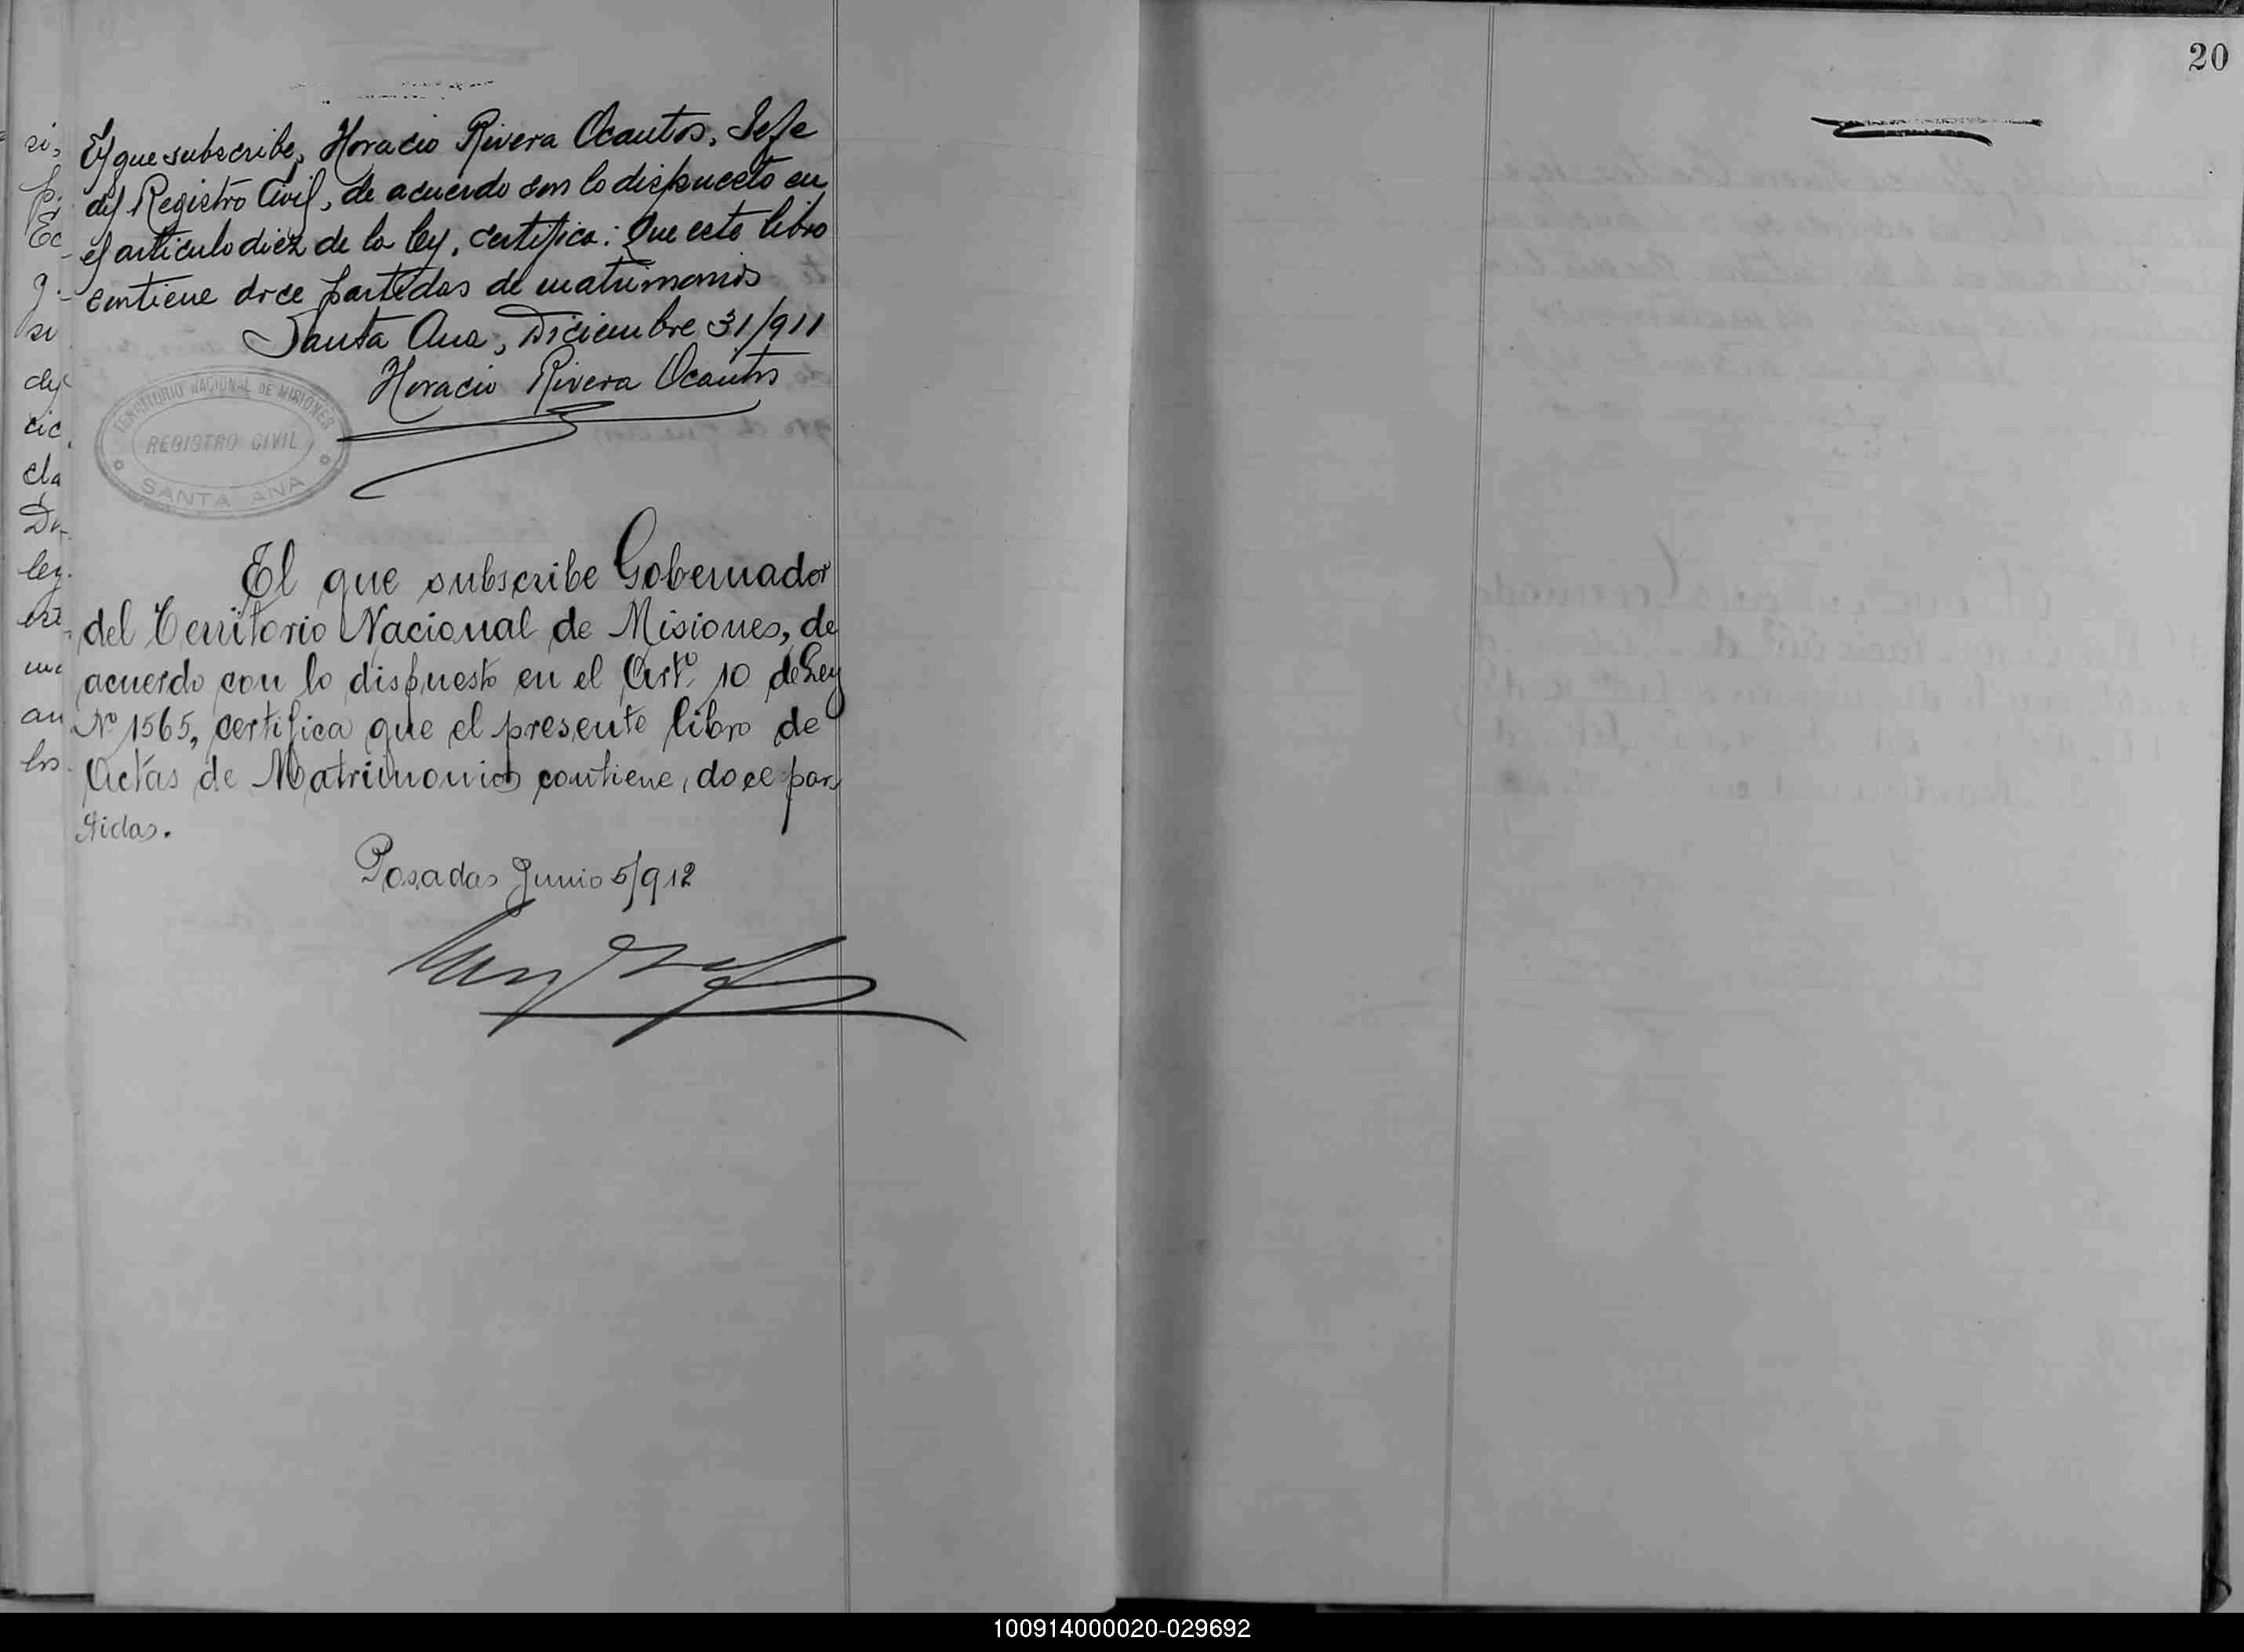 El que subscribe, Horacio Rivera Ocantos, Jefe
del Registro Civil, de acuerdo con lo dispuesto en
el articulo diez de la ley, certifica: Que este libro
contiene doce partidas de matrimonios
Santa Ana, Diciembre 31/911
Horacio Rivera Ocantos
TERRITORIO NACIONAL DE MISIONES
REGISTRO CIVIL
SANTA ANA
El que subscribe Gobernador
del Territorio Nacional de Misiones, de
acuerdo con lo dispuesto en el Artº 10 de Ley
Nº 1565, certifica que el presente libro de
Actas de Matrimonios contiene, doce par-
tidas.
Posadas Junio 5/912
20
100914000020-029692